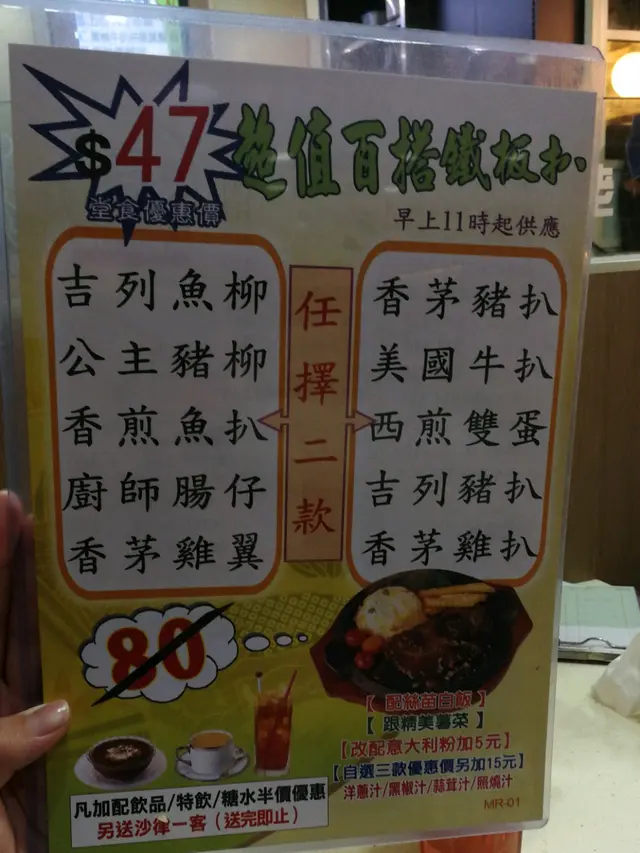 $47
堂食優惠價
超值百搭鐵板扒
早上11時起供應
吉列魚柳
公主豬柳
香煎魚扒
廚師腸仔
香茅雞翼
任擇二款
香茅豬扒
美國牛扒
西煎雙蛋
吉列豬扒
香茅雞扒
80
【配絲苗白飯】
【跟精美薯菜】
【改配意大利粉加5元】
【自選三款優惠價另加15元】
洋蔥汁/黑椒汁/蒜茸汁/照燒汁
凡加配飲品/特飲/糖水半價優惠
另送沙律一客（送完即止）
MR-01